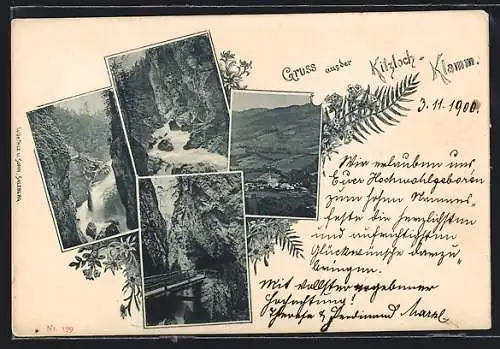 Gruss aus der Kitzloch-Klamm.
3.11.1900.
Wir erlauben uns
Euer Hochwohlgeboren
zum hohen Namens-
feste die herzlichsten
und aufrichtigsten
Glückwünsche darzu-
bringen.
Mit vollster ergebener
Hochachtung!
Therese & Ferdinand
Würthle u. Sohn, Salzburg
Nr. 179